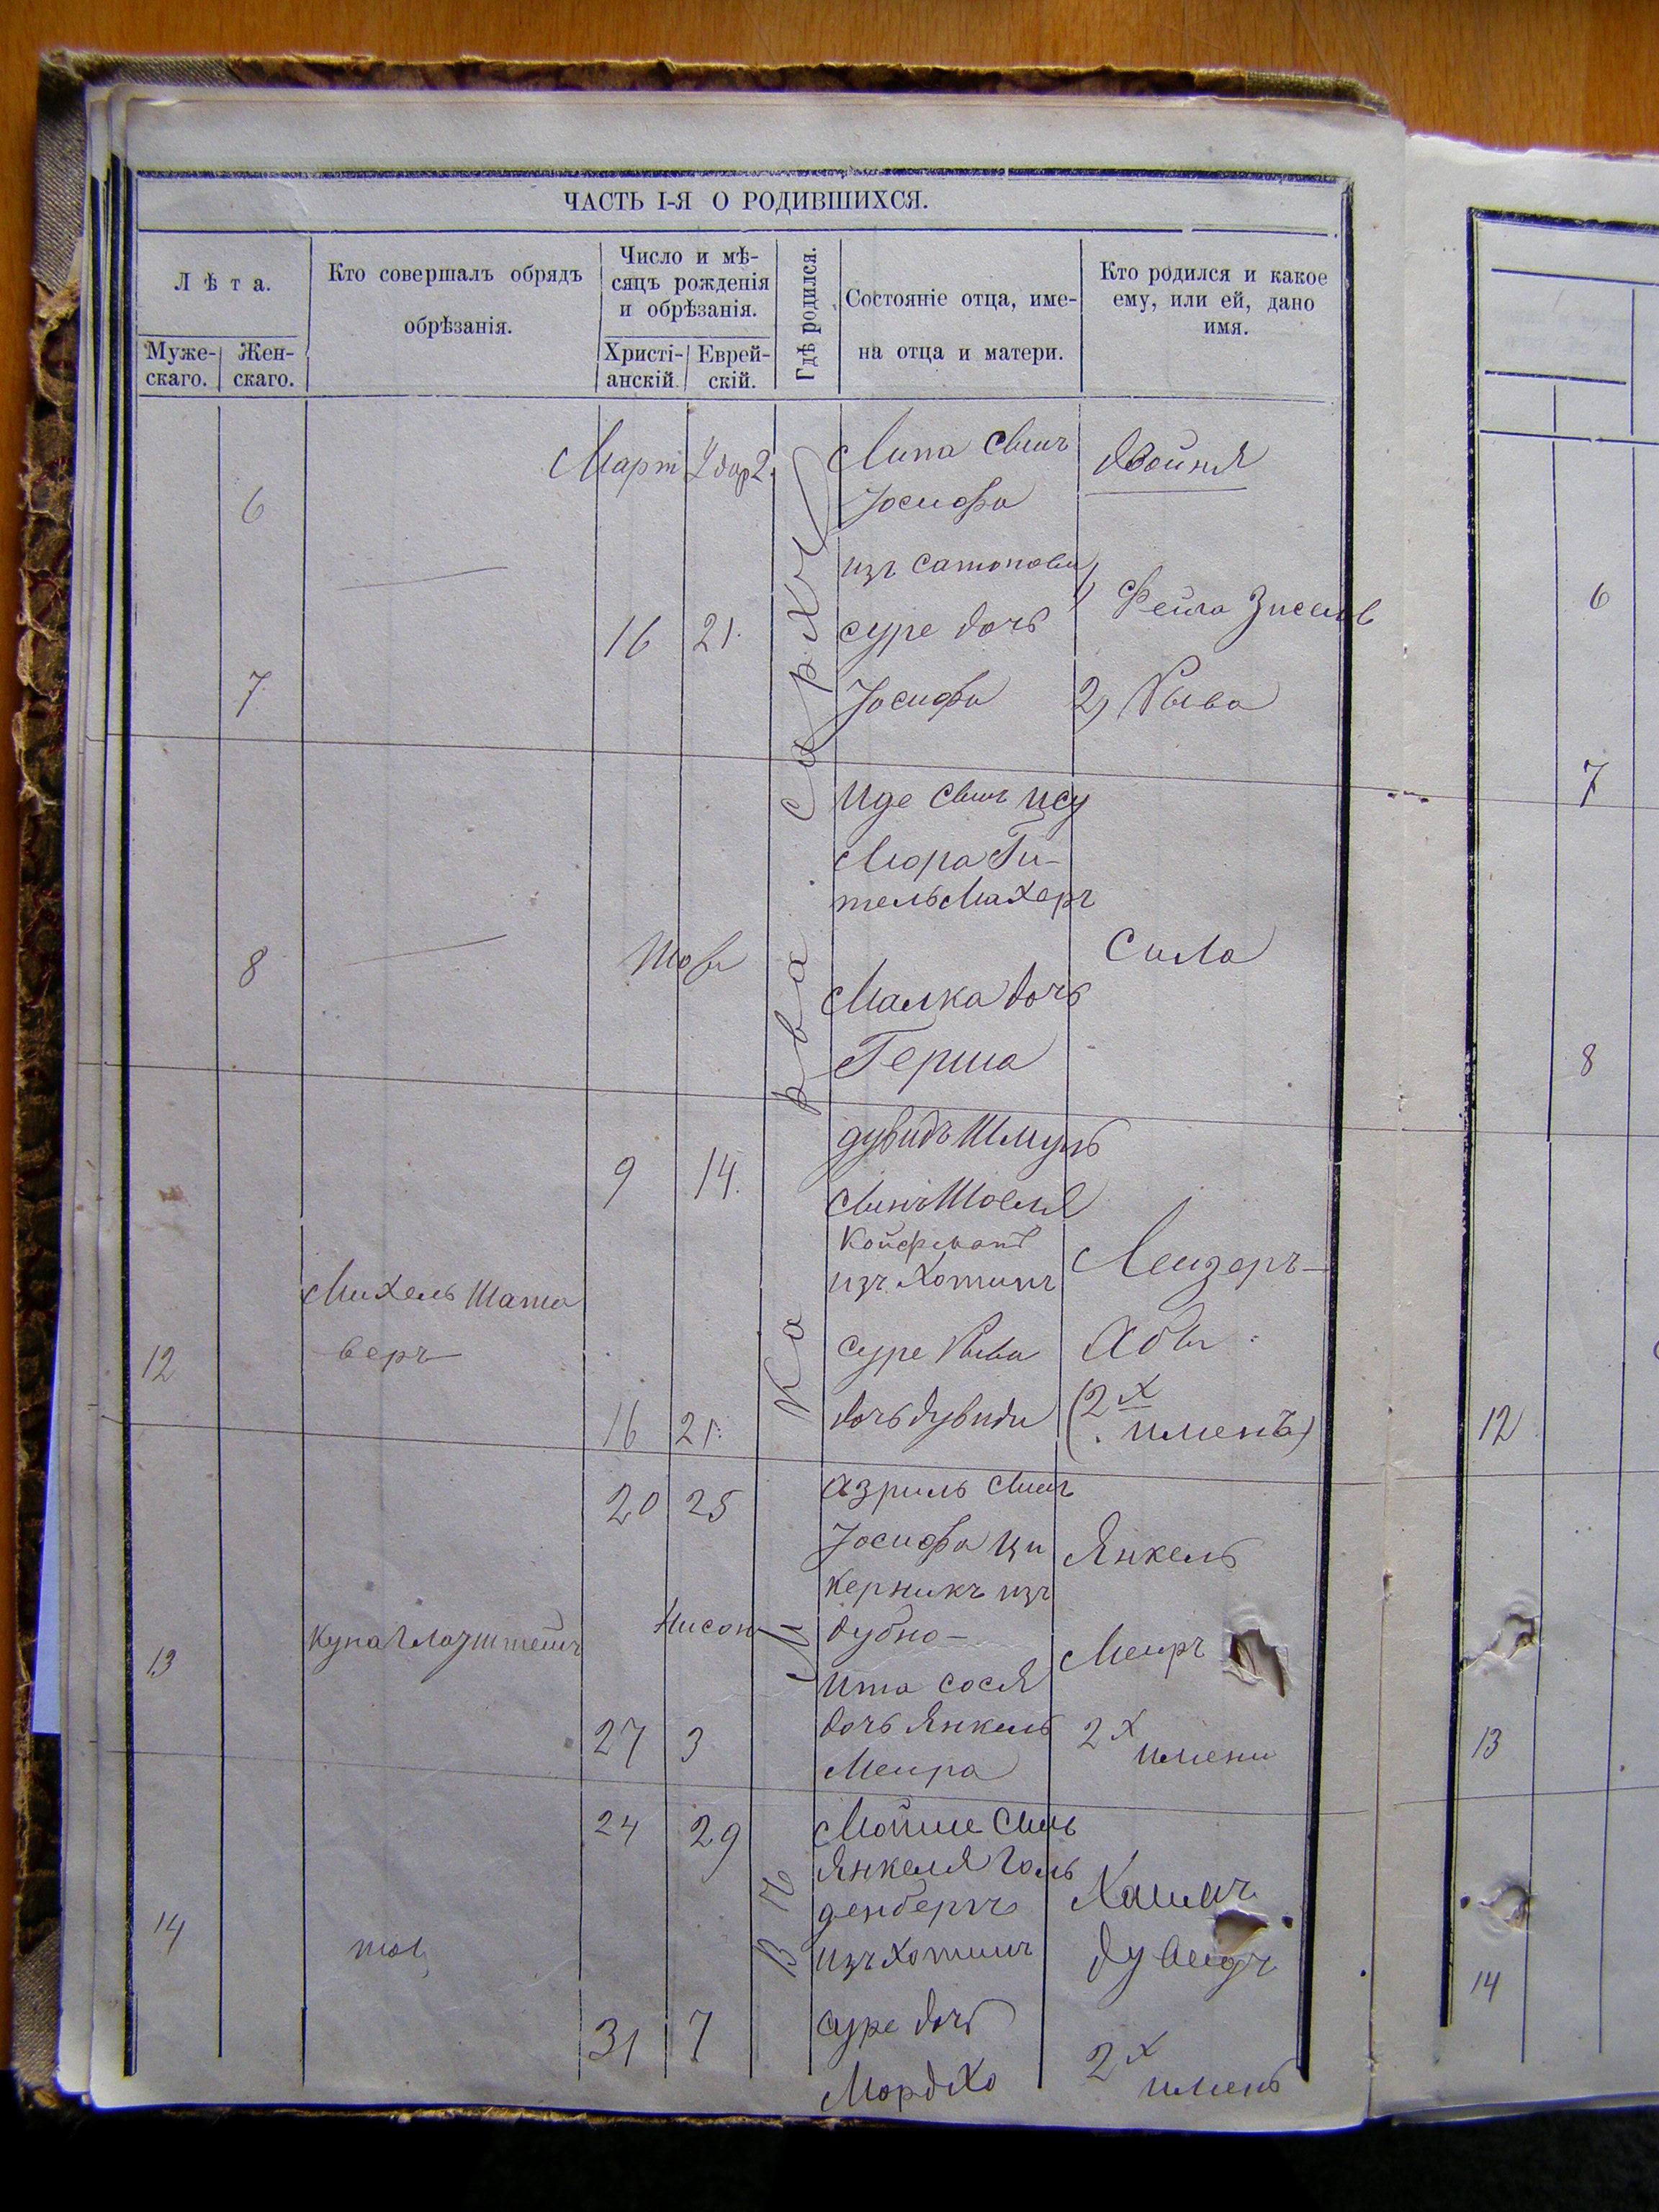 ЧАСТЬ I-Я О РОДИВШИХСЯ.
Лѣта.
Муже-
скаго.
Жен-
скаго.
Кто совершалъ обрядъ
обрѣзанія.
Число и мѣ-
сяцъ рожденія
и обрѣзанія.
Христі-
анскій.
Еврей-
скій.
Гдѣ родился.
Состояніе отца, име-
на отца и матери.
Кто родился и какое
ему, или ей, дано
имя.
6
7
Март
Адар 2.
16 21.
Липа сынъ
Іосифа
изъ
суре дочь
Іосифа
двойня
1) Фейга Зисель
2) Рыва
8
Иде сынъ
Мора Ги-
тельмахеръ
Малка дочь
Герша
Сила
12
Михель Шата
веръ
9 14.
16 21.
дувидъ Шмуль
сынъ
из Хотинъ
суре Рыва
дочь дувида
Лейзеръ-
(2х
именъ)
13
20 25
Нисон
27 3
азриль сынъ
Іосифа Ци
керникъ изъ
дубно-
Ита Сося
дочь Янкель
Меира
Янкель
Меиръ
2х
имени
14
24 29
31 7
Мойше сынъ
Янкеля Голь
денбергъ
изъ Хотинъ
суре дочь
Мордхо
Хаимъ
дувидъ
2х
именъ
6
7
8
12
13
14